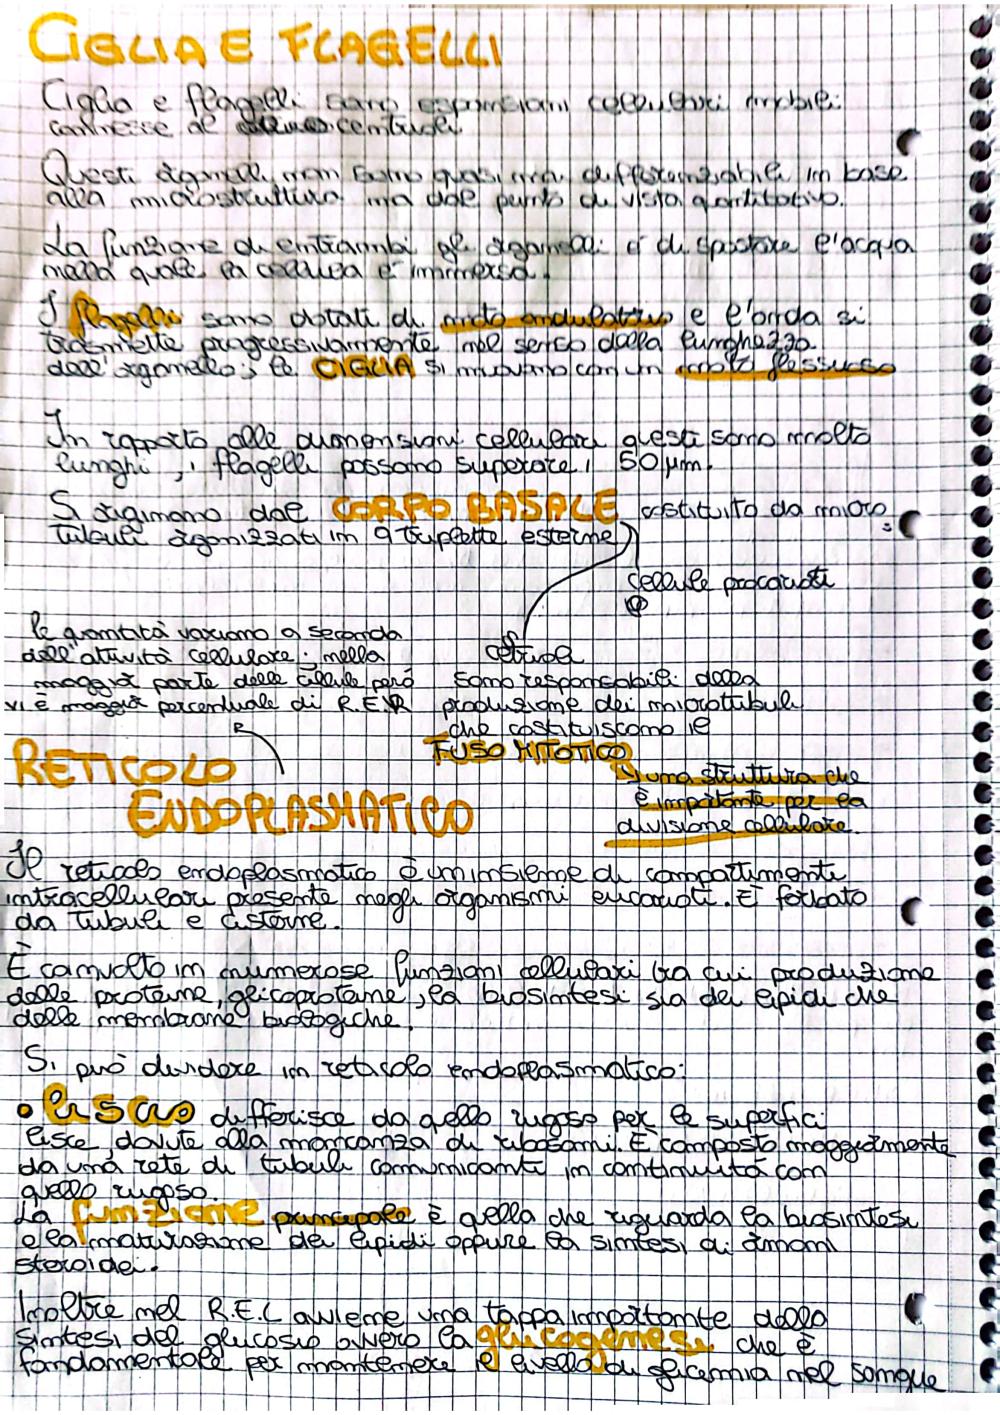 CIGLIA E FLAGELLI
Ciglia e flagelli sono espansioni cellulari mobili
connesse al centrioli.
Questi organelli non sono quasi mai differenziabili in base
alla microstruttura ma dal punto di vista quantitativo.
La funzione di entrambi gli organelli è di spostare l'acqua
nella quale la cellula è immersa.
I flagelli sono dotati di moto ondulatorio e l'onda si
trasmette progressivamente nel senso della lunghezza
dell'organello; le CIGLIA si muovono con un moto flessuoso
In rapporto alle dimensioni cellulari questi sono molto
lunghi, i flagelli possono superare i 50 μm.
Si originano dal CORPO BASALE costituito da micro
tubuli organizzati in 9 triplette esterne
cellule procarioti
le quantità variano a seconda
dell'attività cellulare; nella
maggior parte delle cellule però
vi è maggior percentuale di R.E.R
centrioli
sono responsabili della
produzione dei microtubuli
che costituiscono il
FUSO MITOTICO
una struttura che
è importante per la
divisione cellulare.
RETICOLO
ENDOPLASMATICO
Il reticolo endoplasmatico è un insieme di compartimenti
intracellulari presente negli organismi eucarioti. È formato
da tubuli e cisterne.
È coinvolto in numerose funzioni cellulari tra cui produzione
delle proteine, glicoproteine, la biosintesi sia dei lipidi che
delle membrane biologiche.
Si può dividere in reticolo endoplasmatico:
• liscio differisce da quello rugoso per le superfici
lisce, dovute alla mancanza di ribosomi. È composto maggiormente
da una rete di tubuli comunicanti in continuità con
quello rugoso.
La funzione principale è quella che riguarda la biosintesi
e la maturazione dei lipidi oppure la sintesi di ormoni
steroidei.
Inoltre nel R.E.L avviene una tappa importante della
sintesi del glucosio ovvero la glucogenesi che è
fondamentale per mantenere il livello di glicemia nel sangue